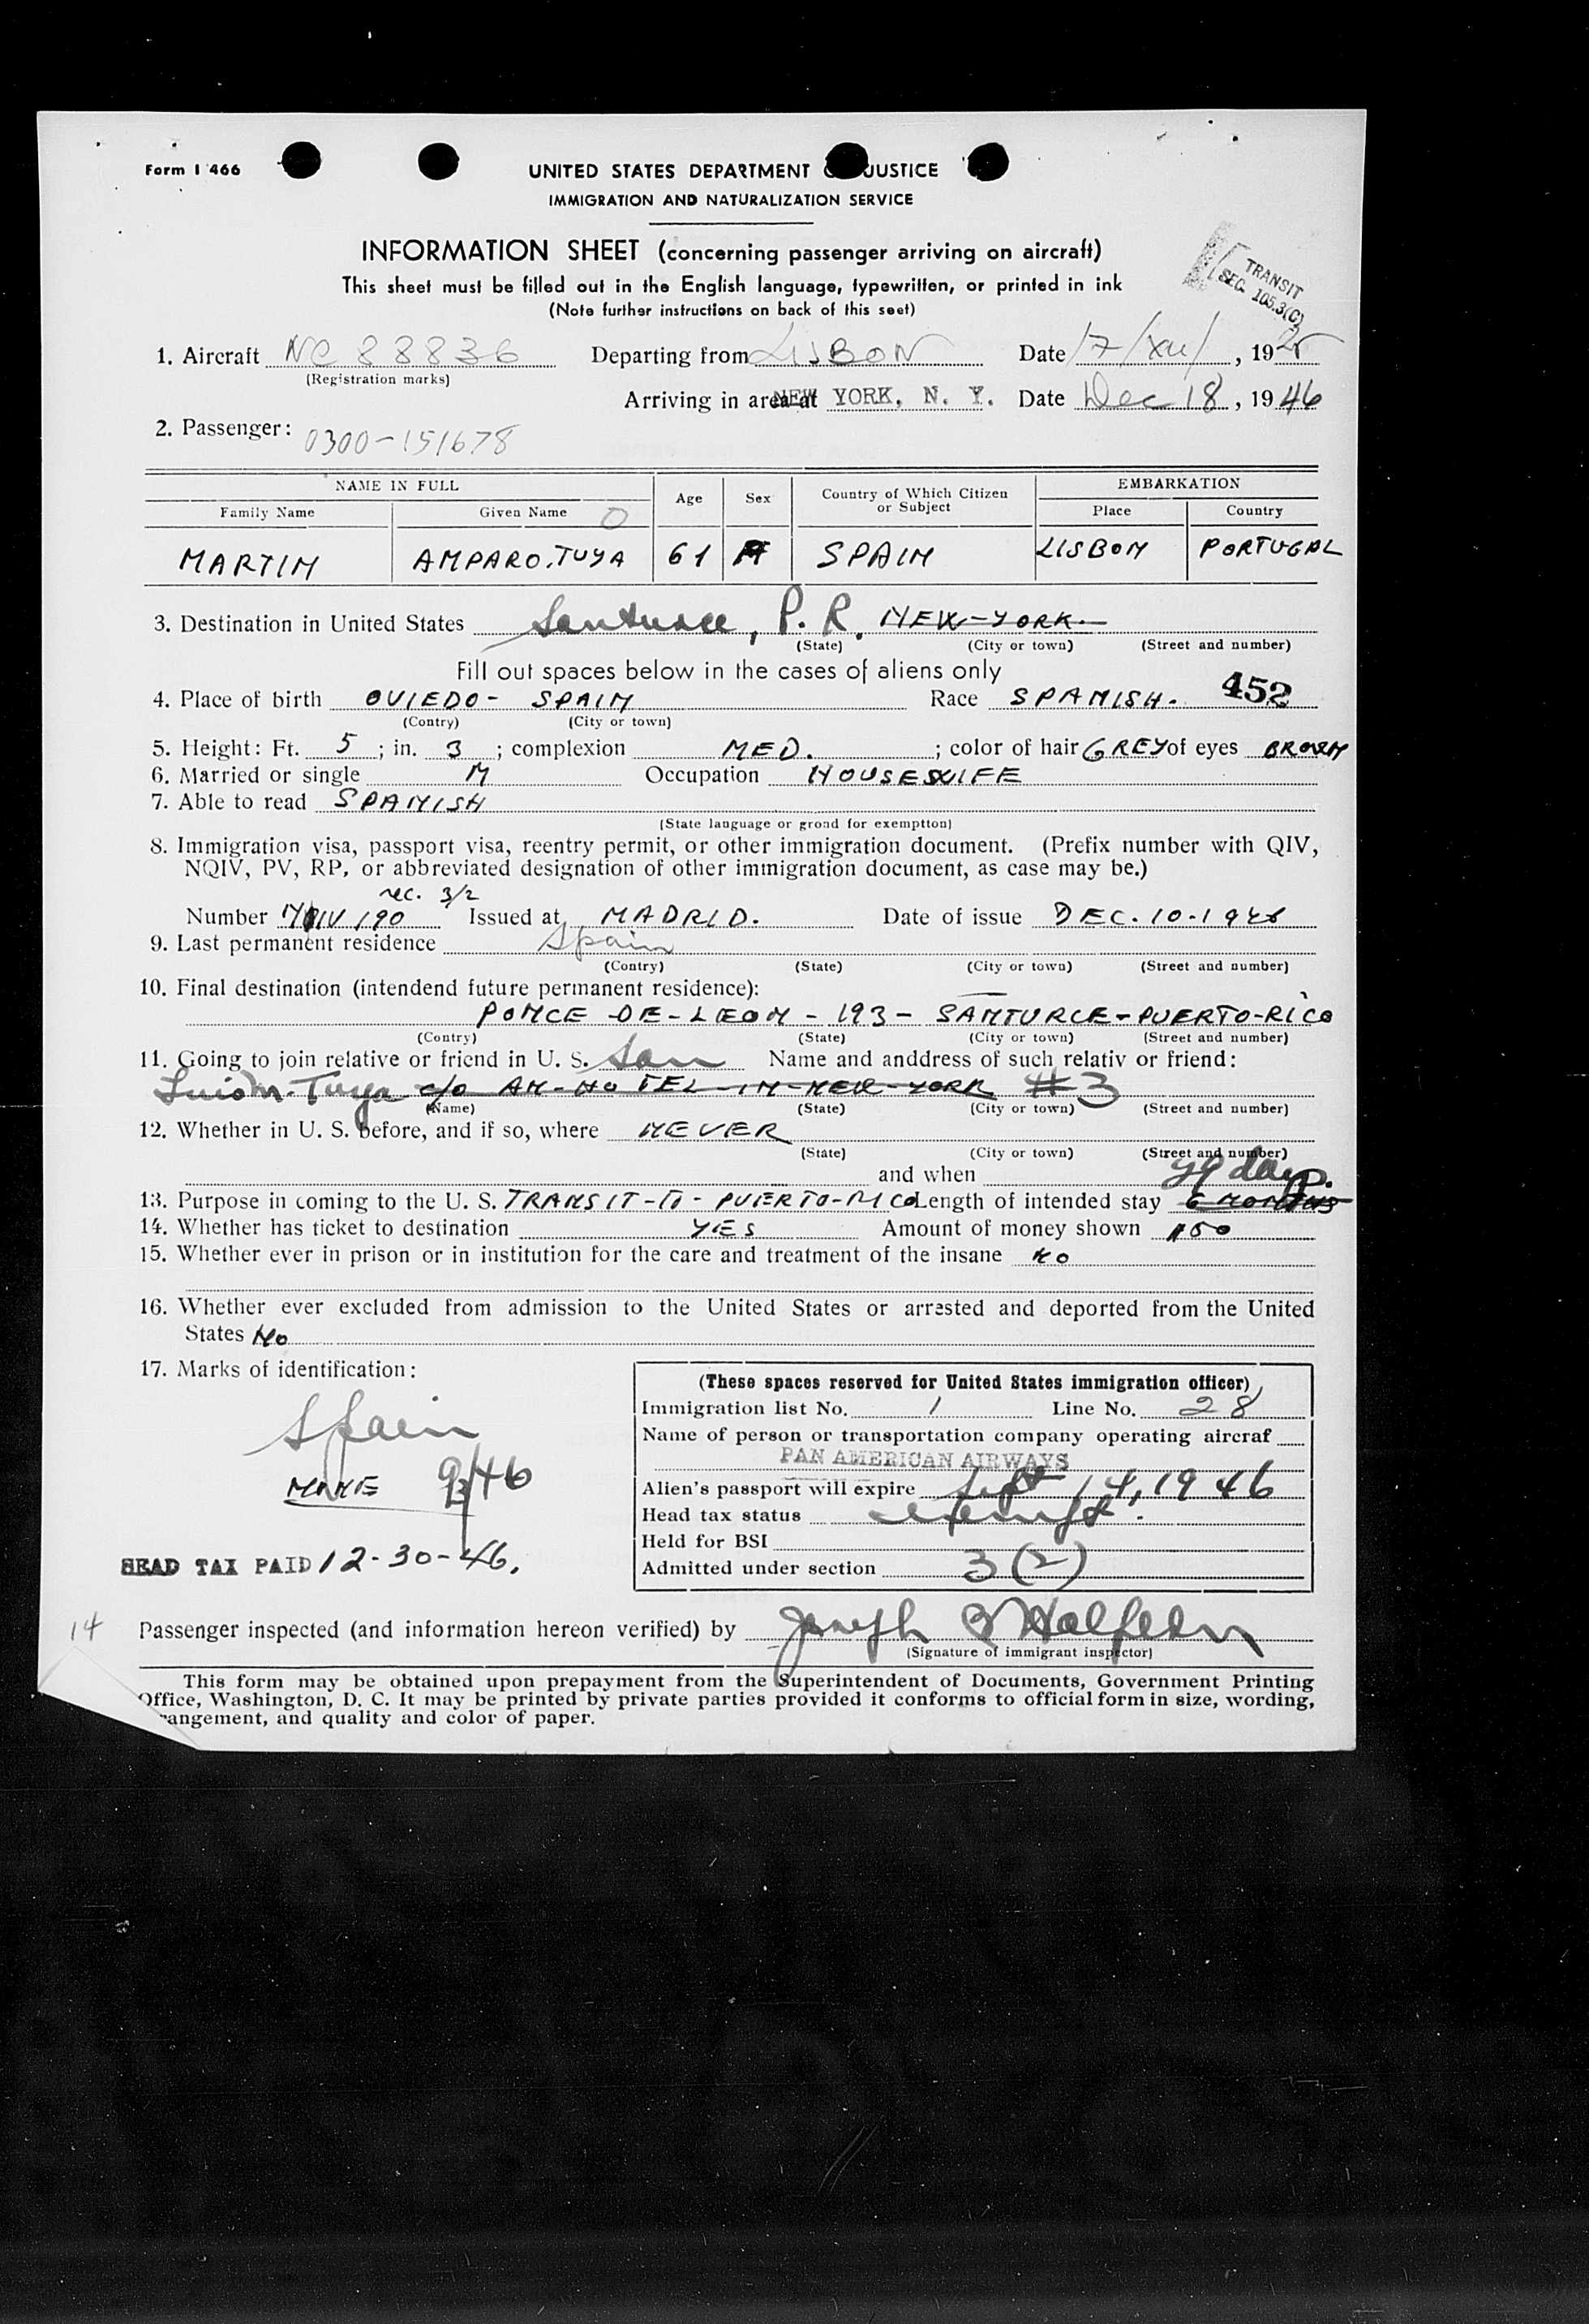 Form I 466
UNITED STATES DEPARTMENT JUSTICE
IMMIGRATION AND NATURALIZATION SERVICE
INFORMATION SHEET (concerning passenger arriving on aircraft)
This sheet must be filled out in the English language, typewritten, or printed in ink
(Note further instructions on back of this seet)
TRANSIT
SEC. 105.3(C)
1. Aircraft NC 88836 Departing from LISBON Date 17/XII/, 19
(Registration marks)
Arriving in area at NEW YORK, N. Y. Date Dec 18, 1946
2. Passenger: 0300-151678
NAME IN FULL Age Sex Country of Which Citizen or Subject EMBARKATION
Family Name Given Name Place Country
MARTIN AMPARO.TUYA 61 SPAIN LISBON PORTUGAL
3. Destination in United States Santurce, P. R. NEW-YORK
(State) (City or town) (Street and number)
Fill out spaces below in the cases of aliens only
4. Place of birth OVIEDO- SPAIN Race SPANISH. 452
(Contry) (City or town)
5. Height: Ft. 5; in. 3; complexion MED.; color of hair GREY of eyes BROWN
6. Married or single M Occupation HOUSEWIFE
7. Able to read SPANISH
(State language or grond for exemptton)
8. Immigration visa, passport visa, reentry permit, or other immigration document. (Prefix number with QIV,
NQIV, PV, RP, or abbreviated designation of other immigration document, as case may be.)
rec. 3/2
Number 190 Issued at MADRID. Date of issue DEC. 10-1946
9. Last permanent residence Spain
(Contry) (State) (City or town) (Street and number)
10. Final destination (intendend future permanent residence):
PONCE-DE-LEON - 193 - SANTURCE-PUERTO-RICO
(Contry) (State) (City or town) (Street and number)
11. Going to join relative or friend in U. S. Son Name and anddress of such relativ or friend:
Luis M. Tuya c/o AN-HOTEL-IN-NEW-YORK #3
(Name) (State) (City or town) (Street and number)
12. Whether in U. S. before, and if so, where NEVER
(State) (City or town) (Street and number)
and when
29 days.
13. Purpose in coming to the U. S. TRANSIT-TO-PUERTO-RICO Length of intended stay 6 MONTHS
14. Whether has ticket to destination YES Amount of money shown 150
15. Whether ever in prison or in institution for the care and treatment of the insane NO
16. Whether ever excluded from admission to the United States or arrested and deported from the United
States NO
17. Marks of identification:
Spain
NONE 9/46
HEAD TAX PAID 12-30-46.
(These spaces reserved for United States immigration officer)
Immigration list No. 1 Line No. 28
Name of person or transportation company operating aircraf
PAN AMERICAN AIRWAYS
Alien's passport will expire Sept 14, 1946
Head tax status exempt.
Held for BSI
Admitted under section 3(2)
14
Passenger inspected (and information hereon verified) by Joseph Halpern
(Signature of immigrant inspector)
This form may be obtained upon prepayment from the Superintendent of Documents, Government Printing
Office, Washington, D. C. It may be printed by private parties provided it conforms to official form in size, wording,
rangement, and quality and color of paper.